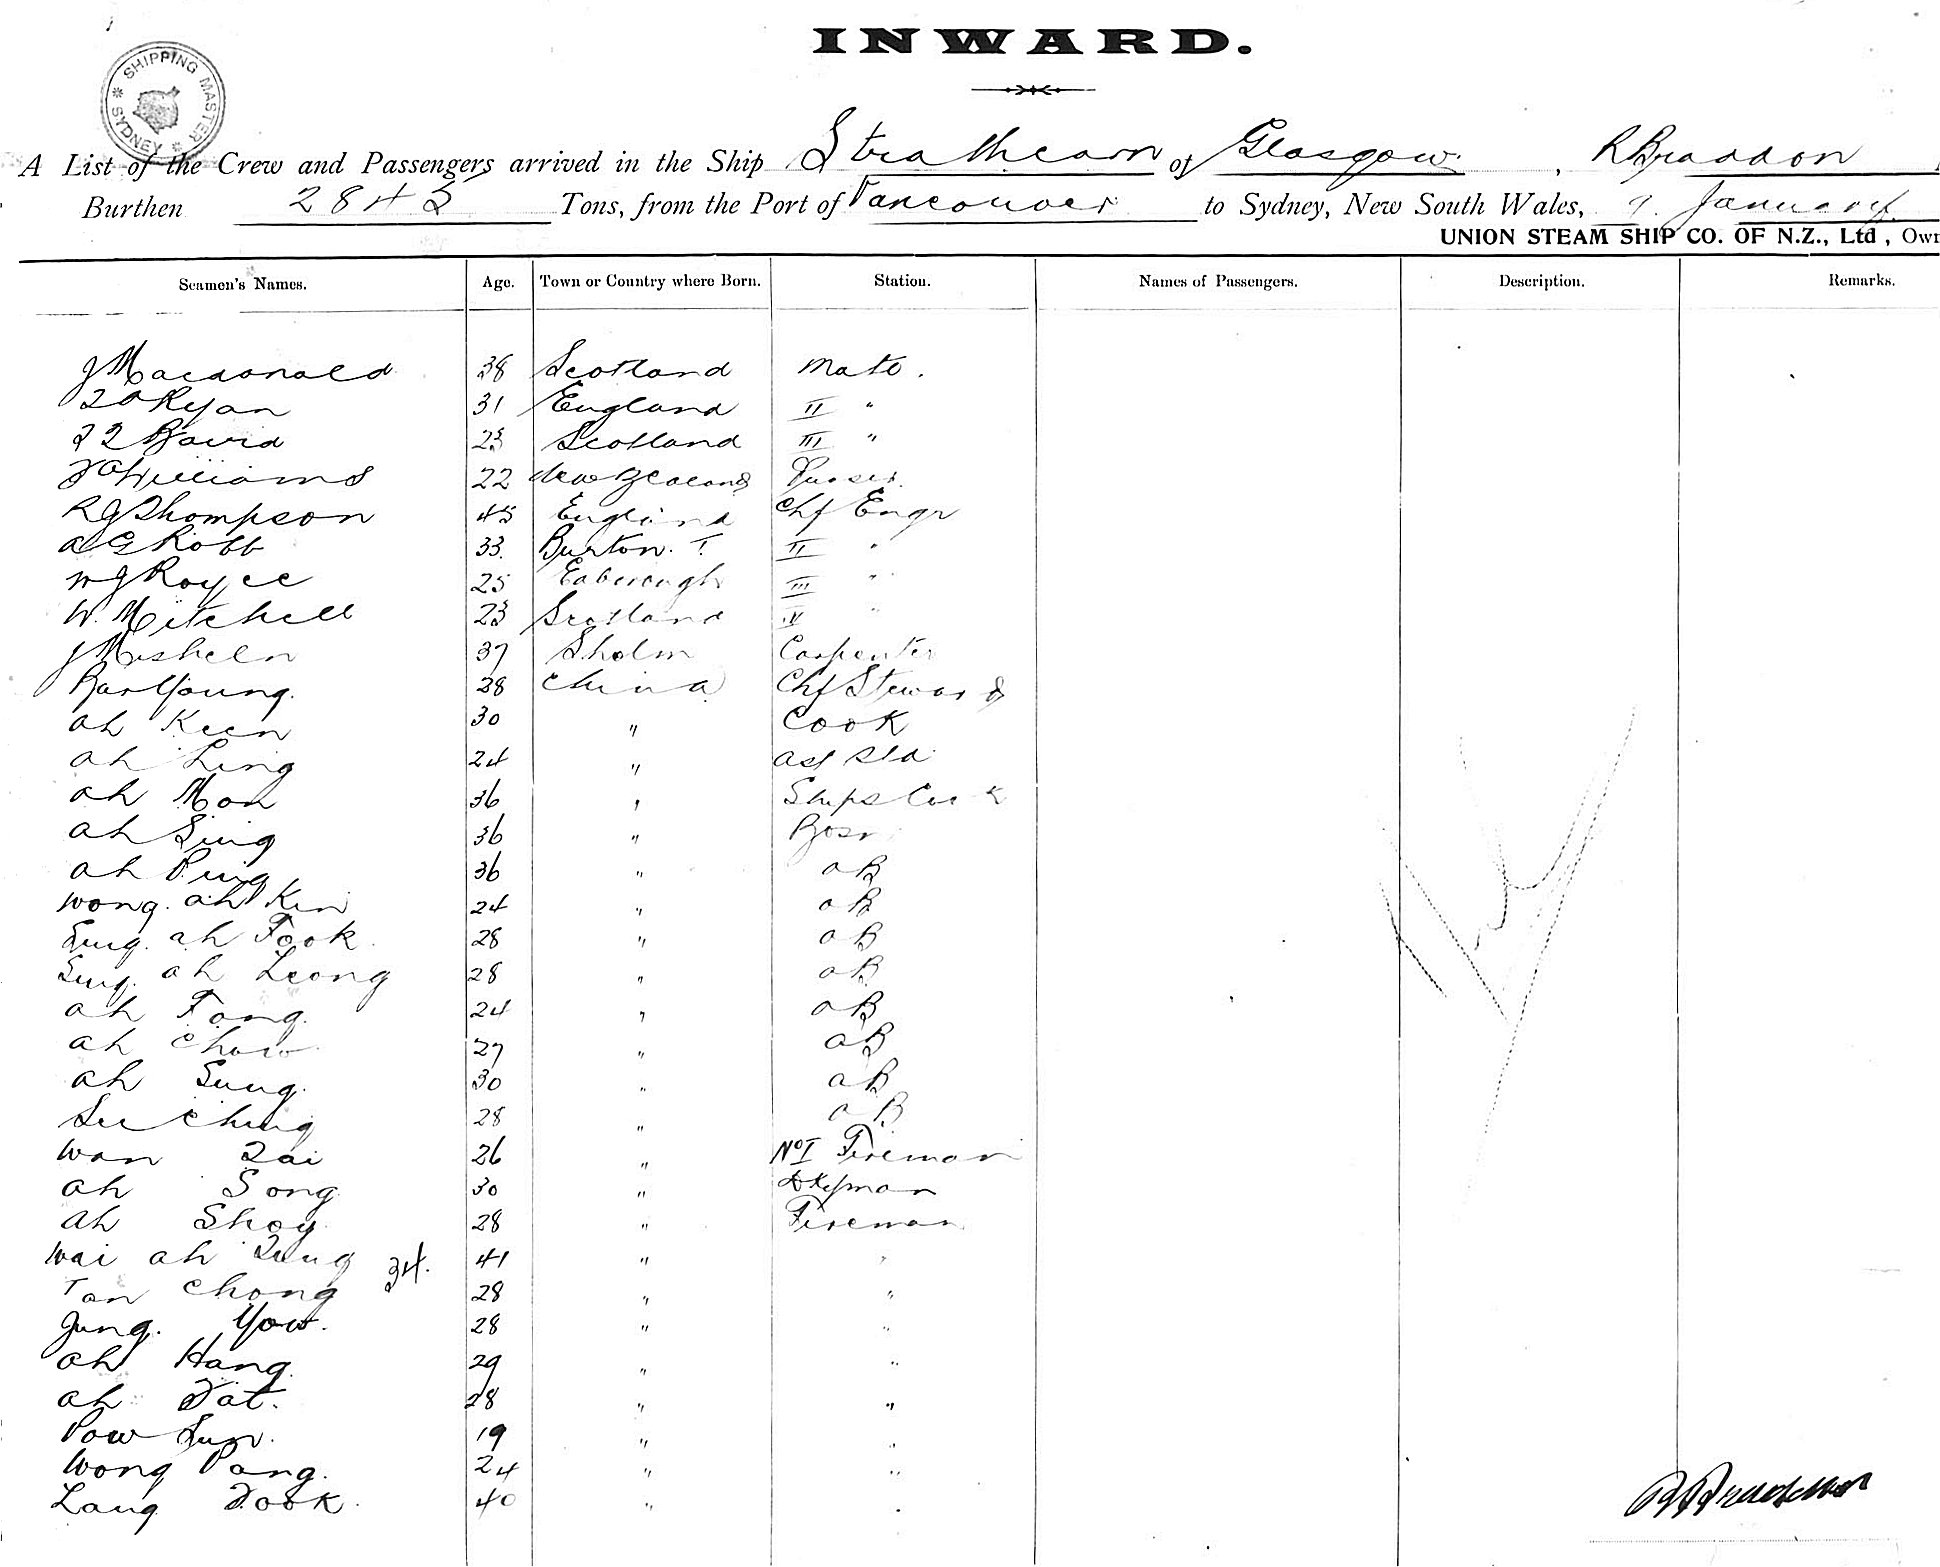 INWARD.
SHIPPING MASTER
SYDNEY
A List of the Crew and Passengers arrived in the Ship Strathearn of Glasgow, R Braddon
Burthen 2843 Tons, from the Port of Vancouver to Sydney, New South Wales, 9. January
UNION STEAM SHIP CO. OF N.Z., Ltd, Own
Seamen's Names. Age. Town or Country where Born. Station. Names of Passengers. Description. Remarks.
J Macdonald 38 Scotland Mate.
Ryan 31 England II "
Baird 23 Scotland III "
Williams 22 New Zealand Purser.
R J Thompson 45 England Chf Engr
A G Robb 33. Burton. T. II "
W J Royce 25 III "
W. Mitchell 23 Scotland "
J 37 Carpenter
Young. 28 China Chf Steward
ah Keen 30 " Cook
ah Ling 24 " ast std
ah Mon 36 " Ships Cook
ah Sing 36 " Bosn
ah Ping 36 " aB
Wong. ah Kin 24 " aB
Sing. ah Fook. 28 " aB
Sing. ah Leong 28 " aB
ah Fong. 24 " aB
ah Chow 27 " aB
ah Sung. 30 " aB
See Ching 28 " aB
Wan 26 " No I Fireman
ah Song 30 " Dkyman
ah Shoy 28 " Fireman
Wai ah 41 " "
34.
Tan Chong 28 " "
Jung. Yow. 28 " "
ah Hang. 29 " "
ah Fat. 28 " "
Pow Sun. 19 " "
Wong Pang. 24 " "
Lang Fook. 40 " "
R Braddon